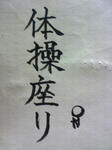 体操座り